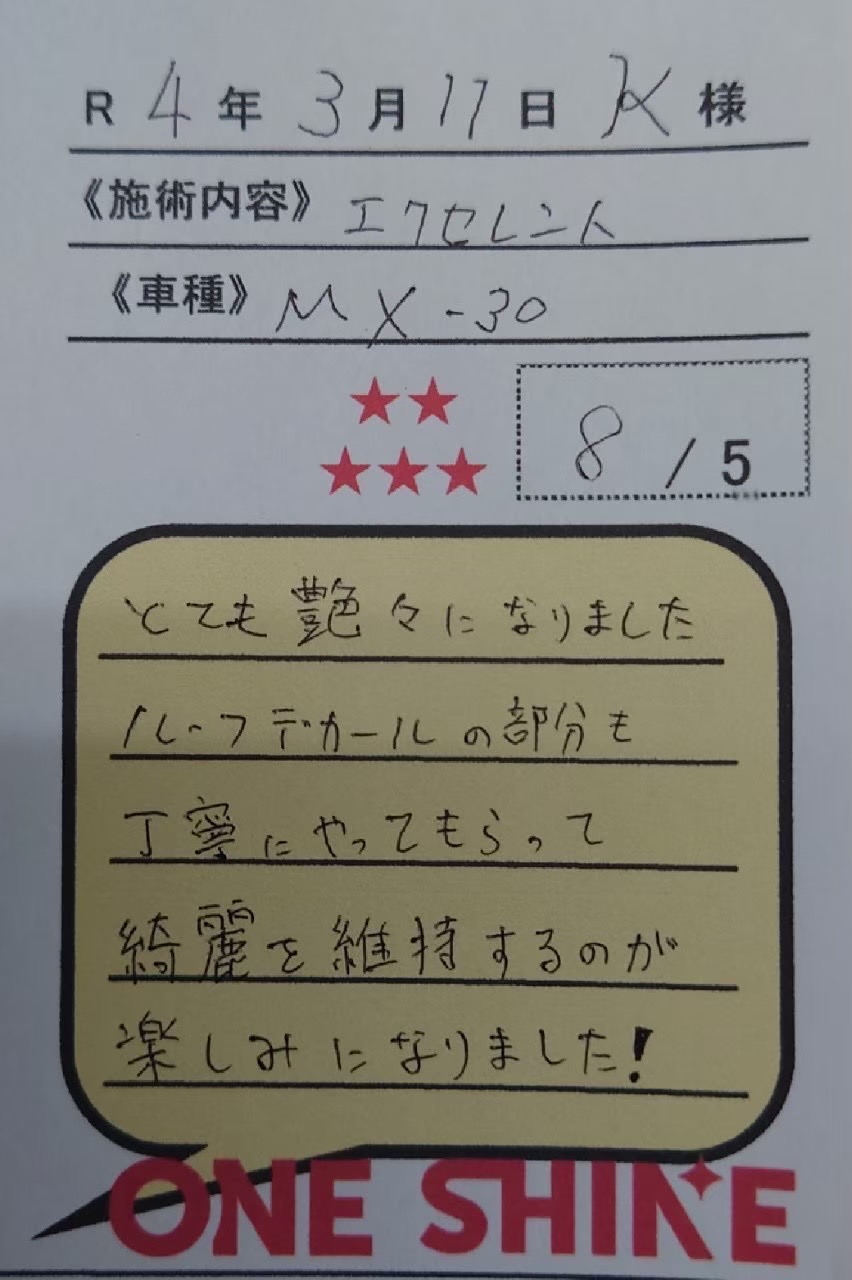 R 4年 3月 17日 K 様
《施術内容》 エクセレント
《車種》 MX-30
8 / 5
とても艶々になりました
ルーフデカールの部分も
丁寧にやってもらって
綺麗を維持するのが
楽しみになりました!
ONE SHINE